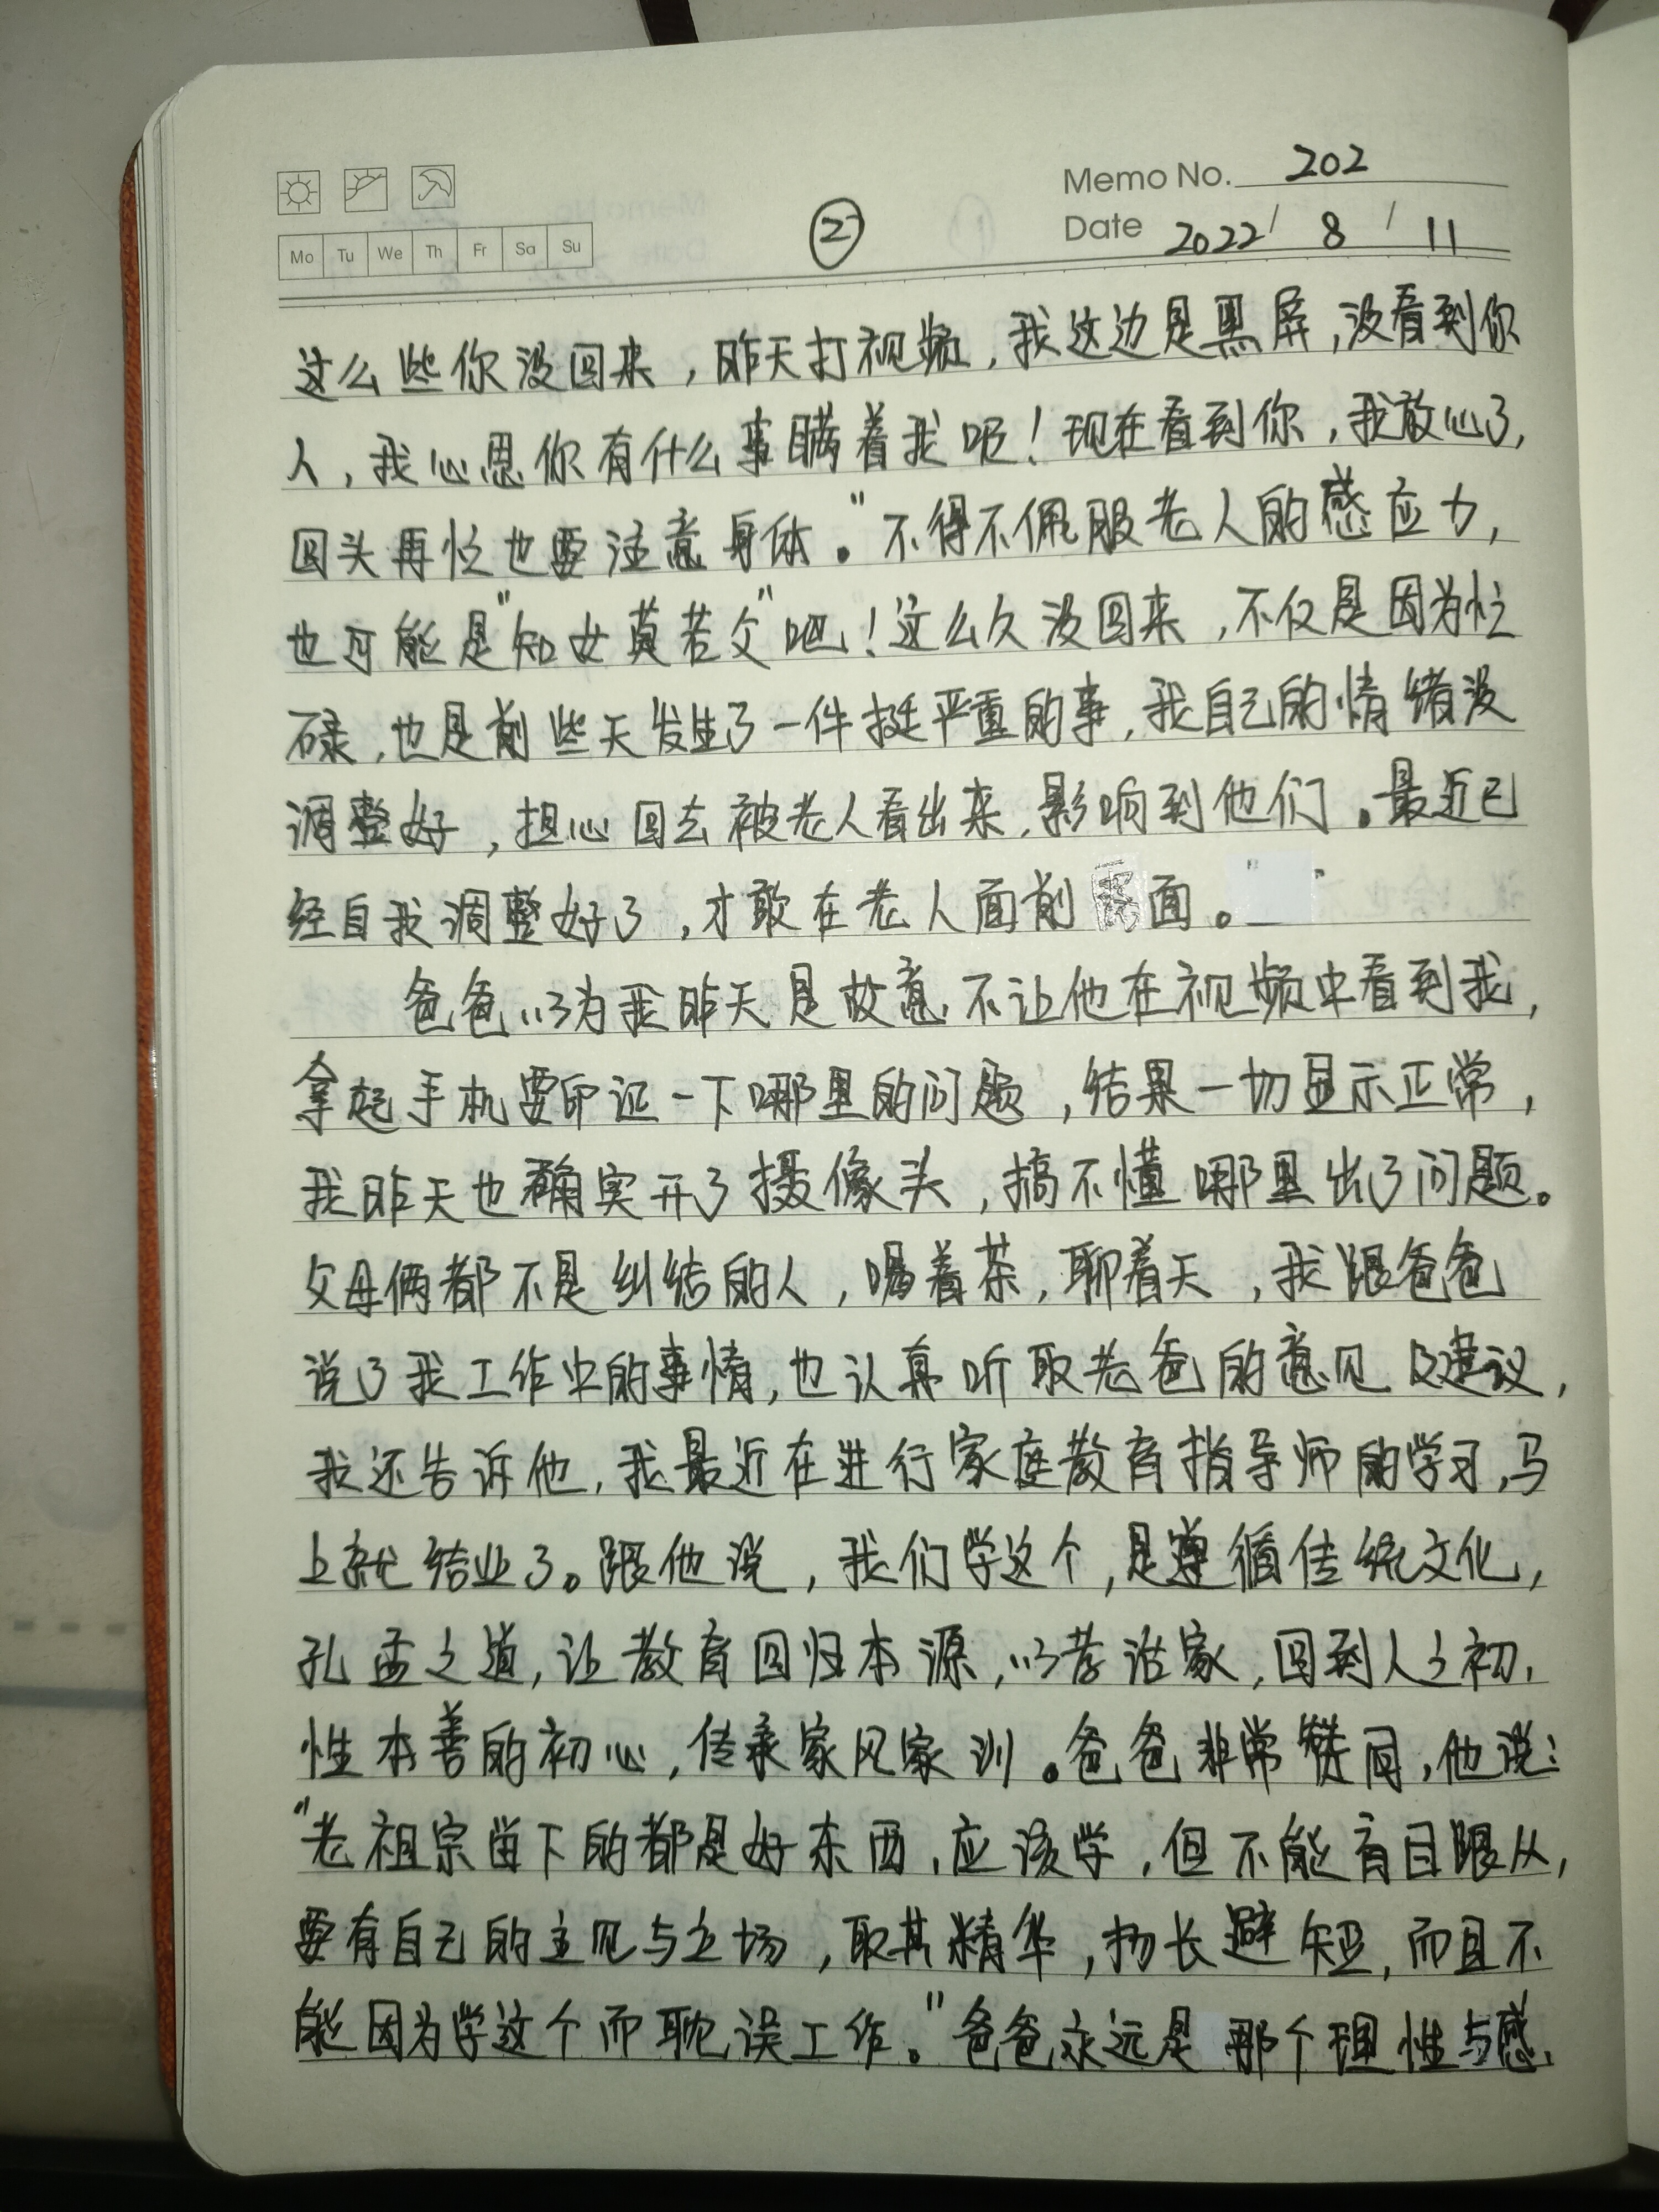 Memo No. 202
Mo Tu We Th Fr Sa Su
②
Date 2022 / 8 / 11
这么些你没回来，昨天打视频，我这边是黑屏，没看到你
人，我心思你有什么事瞒着我呢！现在看到你，我放心了，
回头再忙也要注意身体。"不得不佩服老人的感应力，
也可能是"知女莫若父"吧！这么久没回来，不仅是因为忙
碌，也是前些天发生了一件挺严重的事，我自己的情绪没
调整好，担心回去被老人看出来，影响到他们。最近已
经自我调整好了，才敢在老人面前露面。
爸爸以为我昨天是故意不让他在视频中看到我，
拿起手机要印证一下哪里的问题，结果一切显示正常，
我昨天也确实开了摄像头，搞不懂哪里出了问题。
父母俩都不是纠结的人，喝着茶，聊着天，我跟爸爸
说了我工作中的事情，也认真听取老爸的意见及建议，
我还告诉他，我最近在进行家庭教育指导师的学习，马
上就结业了。跟他说，我们学这个，是遵循传统文化，
孔孟之道，让教育回归本源，以孝治家，回到人之初，
性本善的初心，传承家风家训。爸爸非常赞同，他说：
"老祖宗留下的都是好东西，应该学，但不能盲目跟从，
要有自己的主见与立场，取其精华，扬长避短，而且不
能因为学这个而耽误工作。"爸爸永远是那个理性与感